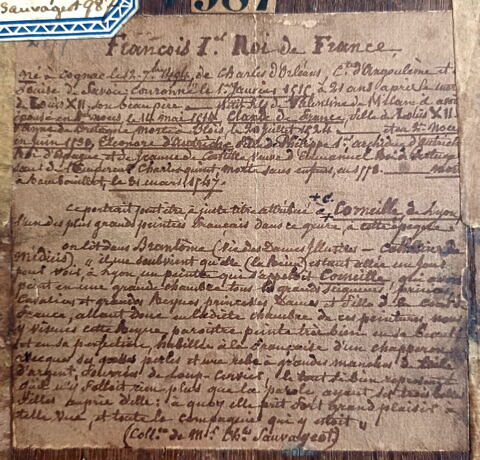 Sauvageot 98
987
François I.er Roi de France
né à Cognac le 12 7.bre 1494, de Charles d'Orléans, C.te d'Angoulême et
Louise de Savoie Couronné le 1.er Janvier 1515 à 21 ans après la mort
de Louis XII, son beau père petit fils de Valentine de Milan il avoit
épousé en 1.eres noces, le 14 mai 1514 Claude de France, fille de Louis XII
d'Anne de Bretagne morte à Blois, le 20 juillet 1524 et en 2.es noces
en juin 1530, Eléonore d'Autriche fille de Philippe 1.er archiduc d'Autriche
Roi d'Espagne et de Jeanne de Castille veuve d'Emmanuel Roi de Portugal
sœur de l'Empereur Charles quint, morte sans enfans, en 1558 mort
à Rambouillet, le 31 mars 1547.
Ce portrait peut être à juste titre attribué à Corneille de Lyon
l'un des plus grand peintres français dans ce genre, à cette époque
on lit dans Brantôme (vie des Dames illustres Catherine de
Médicis), "il me souvient qu'elle (la Reine) estant allée un jour
pour voir à Lyon un peintre qui s'appeloit Corneille, qui avoit
peint en une grande chambre tous les grands seigneurs, princes
Cavaliers et grandes Reynes princesses Dames et filles de la Cour de
France, estant donc en ladicte chambre de ces peintures nous
y vismes cette Reyne, paroistre peinte très bien en sa beauté
et en sa perfection, habillée à la française d'un chapperon
avecques ses grosses perles et une robe à grandes manches de toile
d'argent, fourrées de loup-cervier, le tout si bien représenté
qu'il n'y falloit rien plus que la parole, ayant ses trois belles
filles auprès d'elle: à quoy elle prit fort grand plaisir à
telle vue, et toute la compagnie qui y estoit"
(Coll.on de M.r Ch.es Sauvageot)